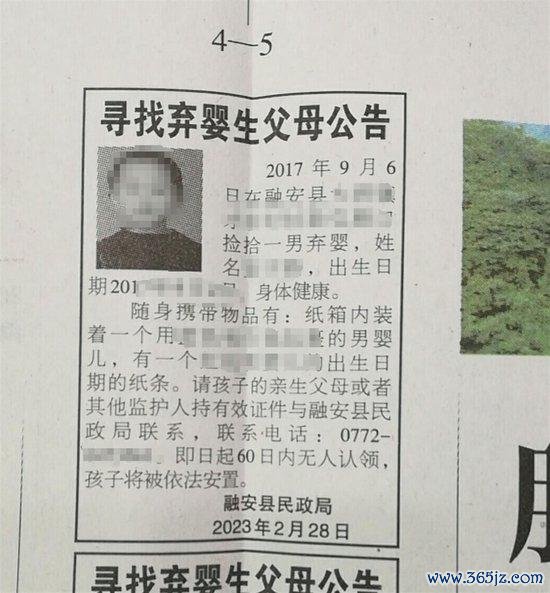 4—5
寻找弃婴生父母公告
2017 年 9 月 6
日在融安县
捡拾一男弃婴，姓
名，出生日
期201 身体健康。
随身携带物品有：纸箱内装
着一个用的男婴
儿，有一个的出生日
期的纸条。请孩子的亲生父母或者
其他监护人持有效证件与融安县民
政局联系，联系电话：0772-
即日起60日内无人认领，
孩子将被依法安置。
融安县民政局
2023年2月28日
寻找弃婴生父母公告
www.365jz.com